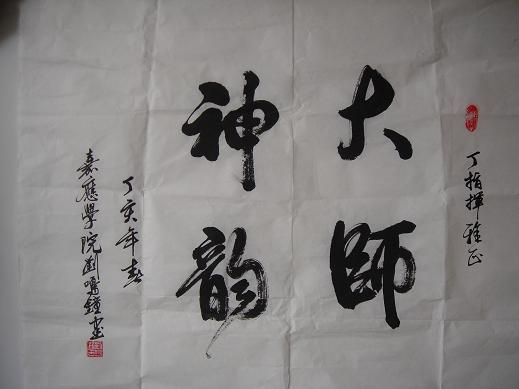 丁指揮雅正
大師
神韵
丁亥年春
嘉應學院劉鳴鐘書